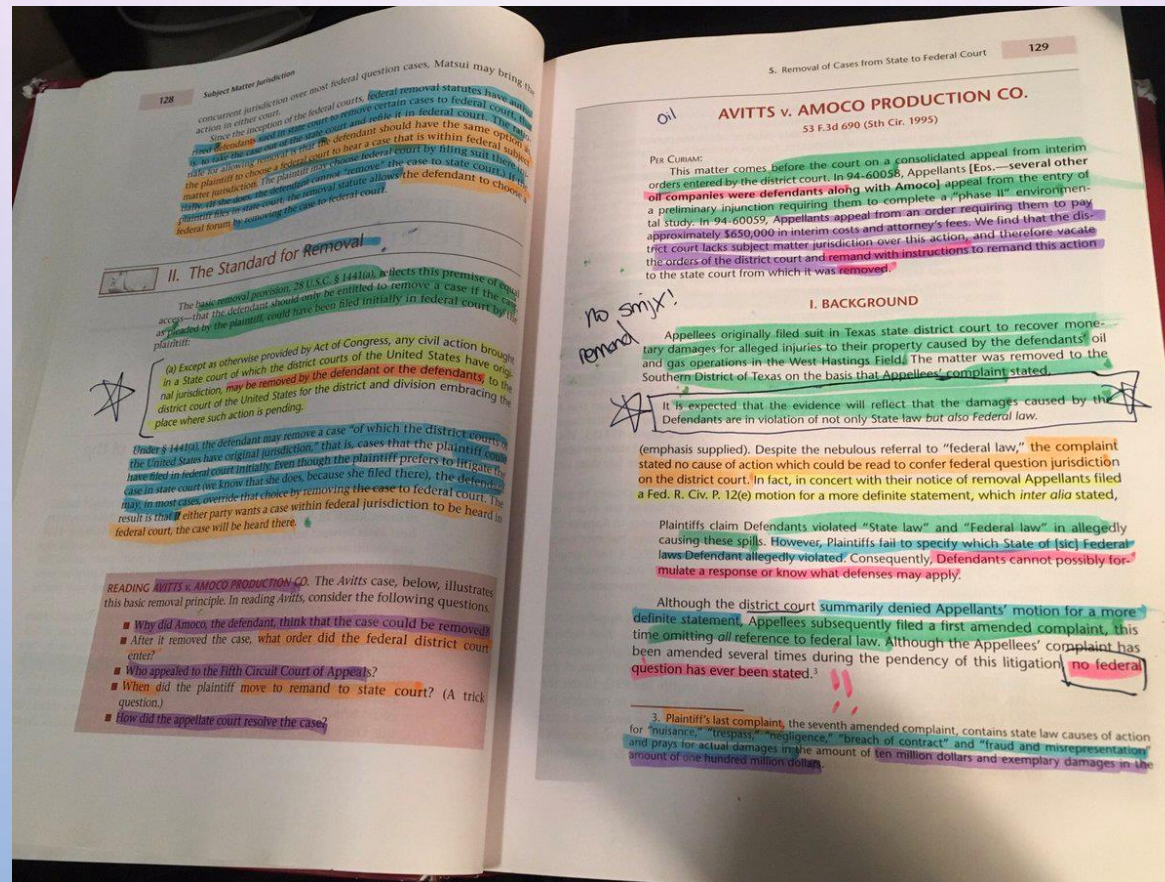 128
Subject Matter Jurisdiction
concurrent jurisdiction over most federal question cases, Matsui may bring the
action in either court.
Since the inception of the federal courts, federal removal statutes have
defendants sued in state court to remove certain cases to federal court, that
is, to take the case out of the state court and refile it in federal court. The
for allowing removal is that the defendant should have the same option as
the plaintiff to choose a federal court to hear a case that is within federal subject
matter jurisdiction. The plaintiff may choose federal court by filing suit there
If she does, the defendant cannot "remove" the case to state court.) If the
plaintiff files in state court, the removal statute allows the defendant to choose a
federal forum by removing the case to federal court.
II. The Standard for Removal
The basic removal provision, 28 U.S.C. § 1441(a), reflects this premise of equal
access—that the defendant should only be entitled to remove a case if the case,
as pleaded by the plaintiff, could have been filed initially in federal court by the
plaintiff:
(a) Except as otherwise provided by Act of Congress, any civil action brought
in a State court of which the district courts of the United States have origi-
nal jurisdiction, may be removed by the defendant or the defendants, to the
district court of the United States for the district and division embracing the
place where such action is pending.
Under § 1441(a), the defendant may remove a case "of which the district courts of
the United States have original jurisdiction," that is, cases that the plaintiff could
have filed in federal court initially. Even though the plaintiff prefers to litigate the
case in state court (we know that she does, because she filed there), the defendant
may, in most cases, override that choice by removing the case to federal court. The
result is that if either party wants a case within federal jurisdiction to be heard in
federal court, the case will be heard there.
READING AVITTS v. AMOCO PRODUCTION CO. The Avitts case, below, illustrates
this basic removal principle. In reading Avitts, consider the following questions.
■ Why did Amoco, the defendant, think that the case could be removed?
■ After it removed the case, what order did the federal district court
enter?
■ Who appealed to the Fifth Circuit Court of Appeals?
■ When did the plaintiff move to remand to state court? (A trick
question.)
■ How did the appellate court resolve the case?
5. Removal of Cases from State to Federal Court
129
Oil
AVITTS v. AMOCO PRODUCTION CO.
53 F.3d 690 (5th Cir. 1995)
PER CURIAM:
This matter comes before the court on a consolidated appeal from interim
orders entered by the district court. In 94-60058, Appellants [EDS.—several other
oil companies were defendants along with Amoco] appeal from the entry of
a preliminary injunction requiring them to complete a "phase II" environmen-
tal study. In 94-60059, Appellants appeal from an order requiring them to pay
approximately $650,000 in interim costs and attorney's fees. We find that the dis-
trict court lacks subject matter jurisdiction over this action, and therefore vacate
the orders of the district court and remand with instructions to remand this action
to the state court from which it was removed.
no smjx!
remand
I. BACKGROUND
Appellees originally filed suit in Texas state district court to recover mone-
tary damages for alleged injuries to their property caused by the defendants' oil
and gas operations in the West Hastings Field. The matter was removed to the
Southern District of Texas on the basis that Appellees' complaint stated,
It is expected that the evidence will reflect that the damages caused by the
Defendants are in violation of not only State law but also Federal law.
(emphasis supplied). Despite the nebulous referral to "federal law," the complaint
stated no cause of action which could be read to confer federal question jurisdiction
on the district court. In fact, in concert with their notice of removal Appellants filed
a Fed. R. Civ. P. 12(e) motion for a more definite statement, which inter alia stated,
Plaintiffs claim Defendants violated "State law" and "Federal law" in allegedly
causing these spills. However, Plaintiffs fail to specify which State of [sic] Federal
laws Defendant allegedly violated. Consequently, Defendants cannot possibly for-
mulate a response or know what defenses may apply.
Although the district court summarily denied Appellants' motion for a more
definite statement, Appellees subsequently filed a first amended complaint, this
time omitting all reference to federal law. Although the Appellees' complaint has
been amended several times during the pendency of this litigation, no federal
question has ever been stated.³
!!
3. Plaintiff's last complaint, the seventh amended complaint, contains state law causes of action
for "nuisance," "trespass," "negligence," "breach of contract" and "fraud and misrepresentation"
and prays for actual damages in the amount of ten million dollars and exemplary damages in the
amount of one hundred million dollars.